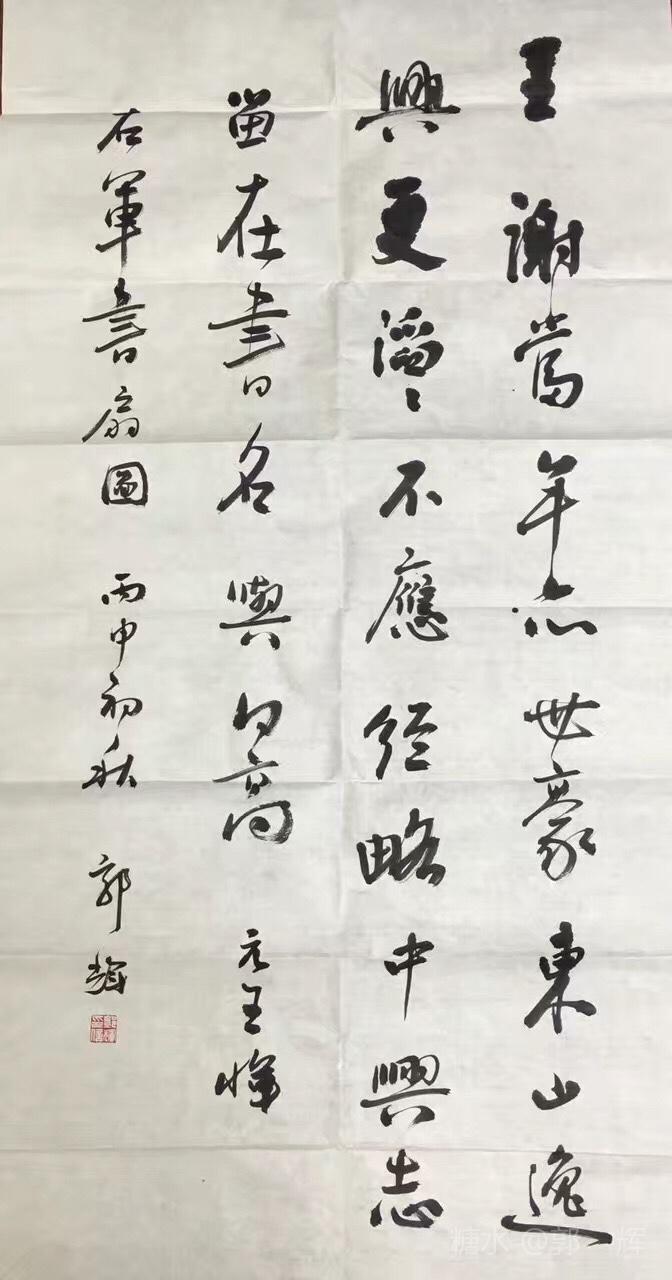 王謝當年亦世豪東山逸
興更滔〻不應經略中興志
畱在書名與日高 元王惲
右軍書扇圖 丙申初秋 郭輝
糖水 @郭 辉